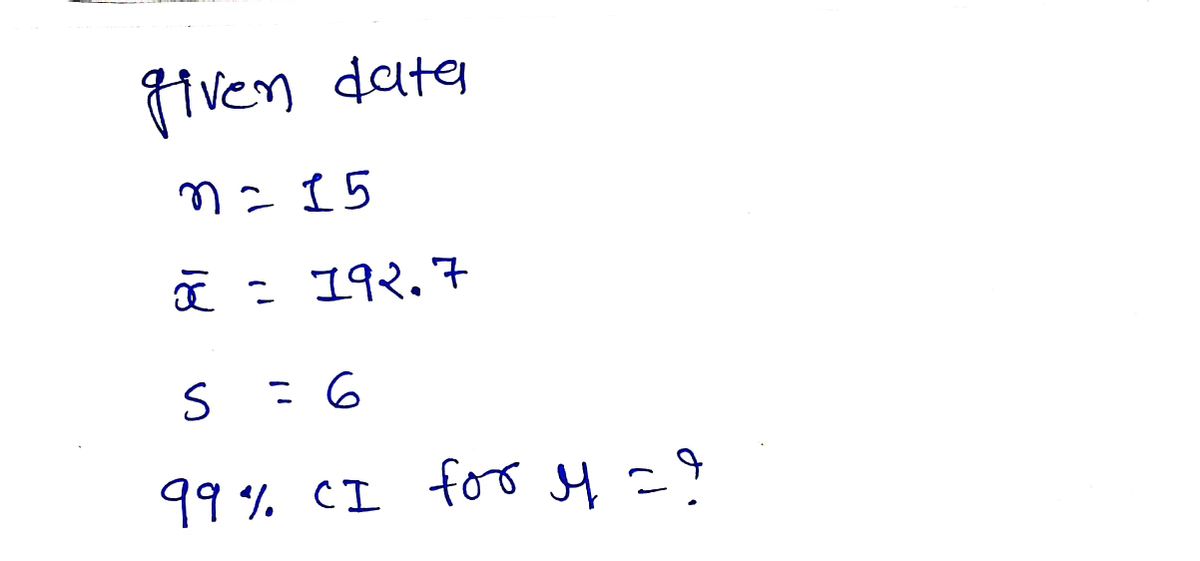 given data
n = 15
x̄ = 192.7
s = 6
99% CI for μ = ?